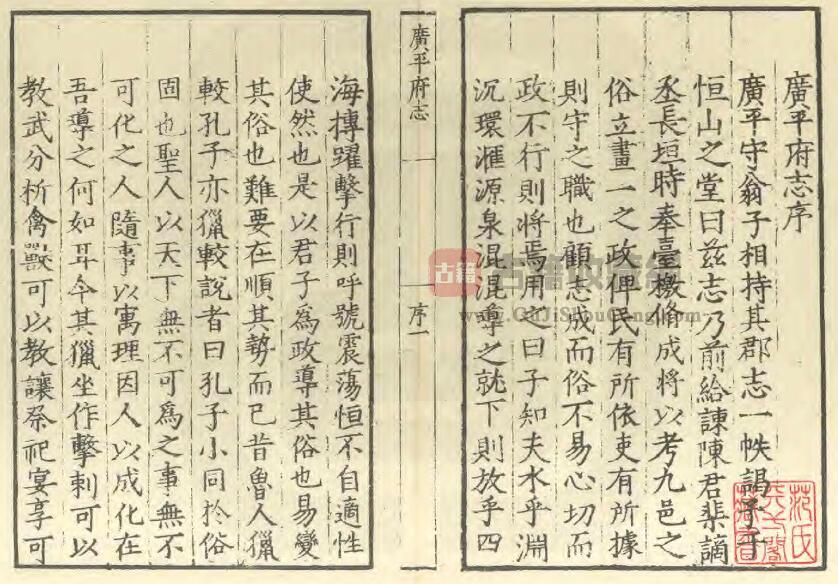 廣平府志序
廣平守翁子相持其郡志一帙謁予于
恒山之堂曰茲志乃前給諫陳君棐謫
丞長垣時奉臺檄脩成將以考九邑之
俗立畫一之政俾民有所依吏有所據
則守之職也顧志成而俗不易心切而
政不行則將焉用之曰子知夫水乎淵
沉環滙源泉混混導之就下則放乎四
廣平府志
序一
海摶躍擊行則呼號震蕩恒不自適性
使然也是以君子爲政導其俗也易變
其俗也難要在順其勢而已昔魯人獵
較孔子亦獵較說者曰孔子小同於俗
固也聖人以天下無不可爲之事無不
可化之人隨事以寓理因人以成化在
吾導之何如耳今其獵坐作擊刺可以
教武分析禽獸可以教讓祭祀宴享可
范氏
天一閣
藏書
古籍
www.GuJiShouCang.com